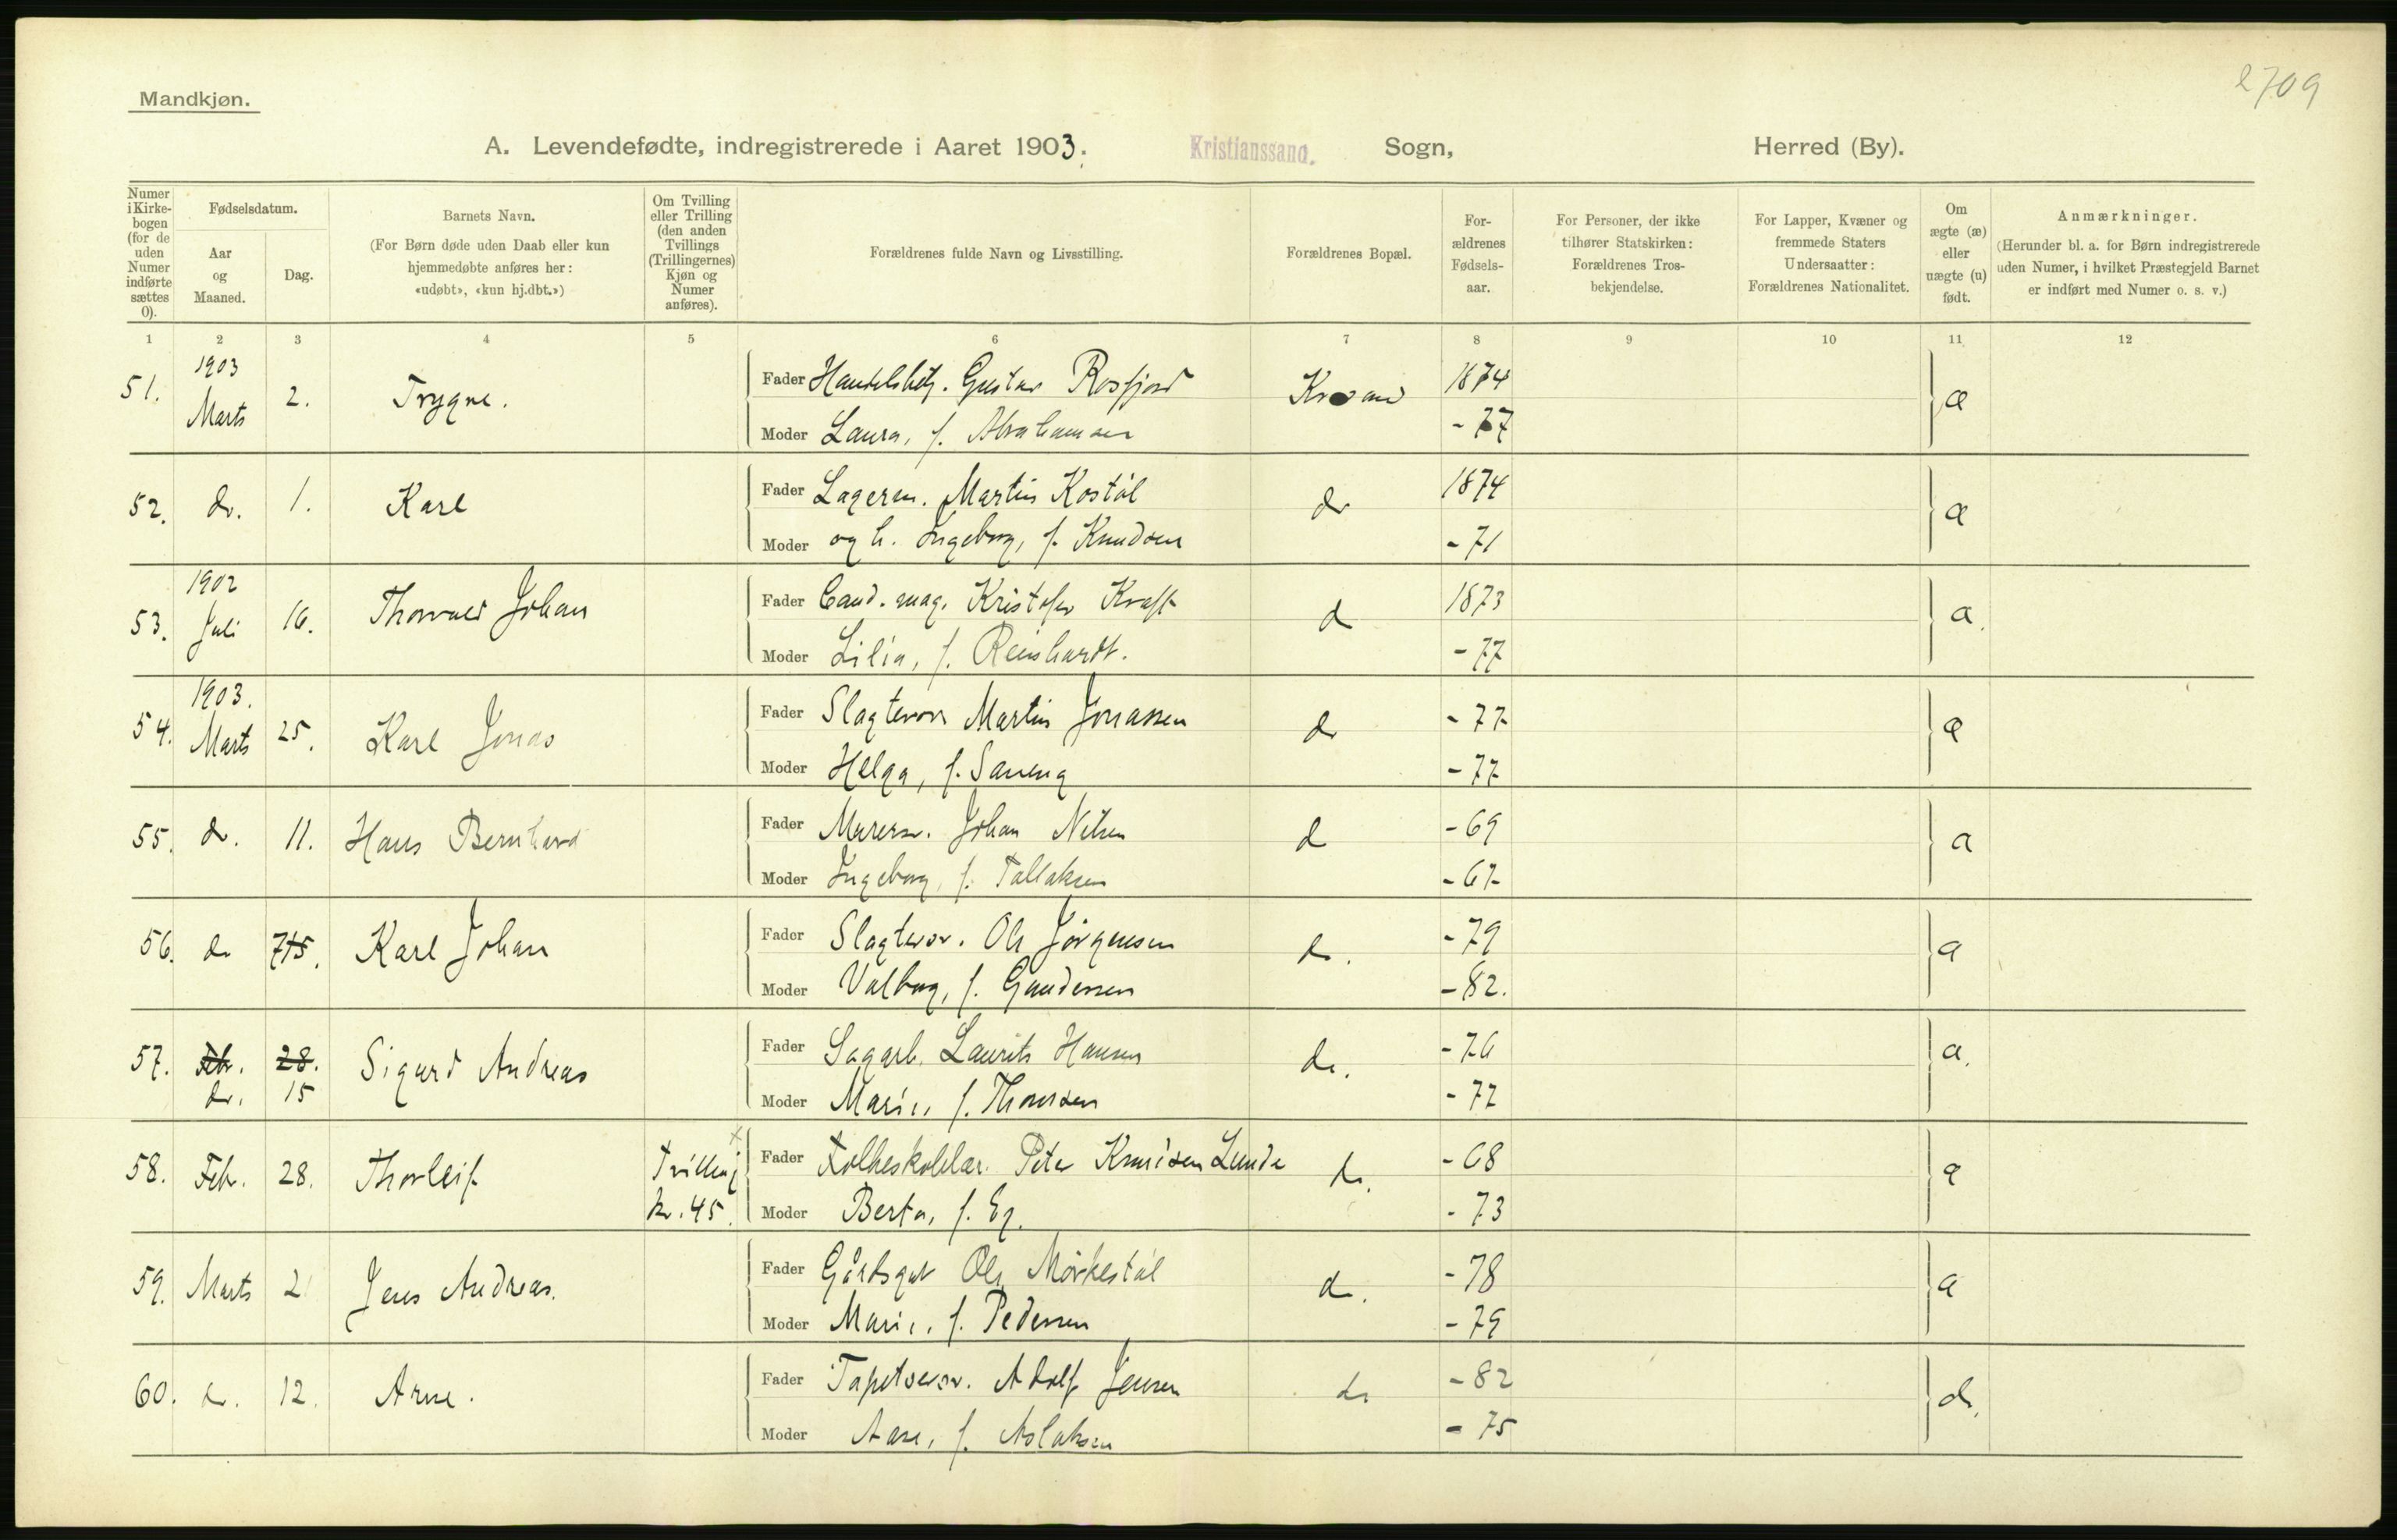 2709
Mandkjøn.
A. Levendefødte, indregistrerede i Aaret 1903. Kristianssand. Sogn, Herred (By).
Numer i Kirkebogen (for de uden Numer indførte sættes 0).
Fødselsdatum.
Aar og Maaned.
Dag.
Barnets Navn.
(For Børn døde uden Daab eller kun hjemmedøbte anføres her: «udøbt», «kun hj.dbt.»)
Om Tvilling eller Trilling (den anden Tvillings (Trillingernes) Kjøn og Numer anføres).
Forældrenes fulde Navn og Livsstilling.
Forældrenes Bopæl.
Forældrenes Fødselsaar.
For Personer, der ikke tilhører Statskirken: Forældrenes Trosbekjendelse.
For Lapper, Kvæner og fremmede Staters Undersaatter: Forældrenes Nationalitet.
Om ægte (æ) eller uægte (u) født.
Anmærkninger.
(Herunder bl. a. for Børn indregistrerede uden Numer, i hvilket Præstegjeld Barnet er indført med Numer o. s. v.)
1 2 3 4 5 6 7 8 9 10 11 12
51. 1903 Marts 2. Trygve. Fader Handelsbetj. Gustav Rosfjord Krsand 1874 æ
Moder Laura, f. Abrahamsen - 77
52. do. 1. Karl Fader Lagerm. Martin Kostøl do 1874 æ
Moder og h. Ingeborg, f. Knudsen - 71
53. 1902 Juli 16. Thorvald Johan Fader Cand. mag. Kristofer Kraft d 1873 æ.
Moder Lilia, f. Reinhardt. - 77
54. 1903. Marts 25. Karl Jonas Fader Slagtersv Martin Jonassen do - 77 æ
Moder Helga, f. - 77
55. do. 11. Hans Bernhard Fader Murersv. Johan Nilsen d - 69 æ
Moder Ingeborg, f. Tallaksen - 67
56. do 715. Karl Johan Fader Slagtersv. Ole Jørgensen do. - 79 æ
Moder Valborg, f. Gundersen - 82.
57. Feb. 28. do. 15 Sigurd Andreas Fader Sagarb. Laurits Hansen do. - 76 æ.
Moder Marie, f. Thomsen - 77
58. Feb. 28. Thorleif Tvilling x Fader Folkeskolelær. Peter Knudsen Lunde do. - 68 æ
kv. 45. Moder Berta, f. Eg. - 73
59. Marts 2 Jens Andreas. Fader Gårdsgut Ole Mørkestøl do. - 78 æ
Moder Marie, f. Pedersen - 79
60. do. 12. Arne. Fader Tapetsersv. Adolf Jensen do - 82 do.
Moder Aase, f. Aslaksen - 75